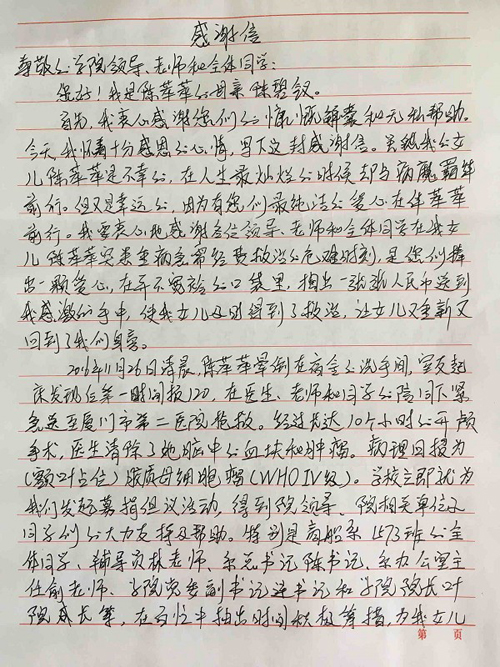 感谢信
尊敬的学院领导、老师和全体同学:
您好!我是陈苹苹的母亲陈碧钗。
首先,我衷心感谢您们的慷慨解囊和无私帮助。
今天,我怀着十分感恩的心情,写下这封感谢信。虽然我的女
儿陈苹苹是不幸的,在人生最灿烂的时候却与病魔
前行。但又是幸运的,因为有您们最纯洁的爱心在伴苹苹
前行。我要衷心地感谢各位领导、老师和全体同学在我女
儿陈苹苹突患重病急需经费救治的危难时刻,是您们捧
出一颗爱心,在并不宽裕的口袋里,抽出一张张人民币送到
我感激的手中,使我女儿及时得到了救治,让女儿又重新又
回到了我们身旁。
2016年11月26日清晨,陈苹苹晕倒在宿舍的洗手间,室友起
床发现后第一时间报120,在医生、老师和同学的陪同下紧
急送至厦门市第二医院抢救。经过长达10个小时的开颅
手术,医生清除了她脑中的血块和肿瘤。病理回报为
(额叶占位)胶质母细胞瘤(WHO IV级)。学校立即就为
我们发起募捐倡议活动,得到院领导、院相关单位及
同学们的大力支持及帮助。特别是商船系1573班的全
体同学、辅导员林老师、系总书记陈书记、系办公室主
任俞老师、学院党委副书记 书记和学院院长叶
院 长等,在百忙中抽出时间积极筹措,为我女儿
第 页